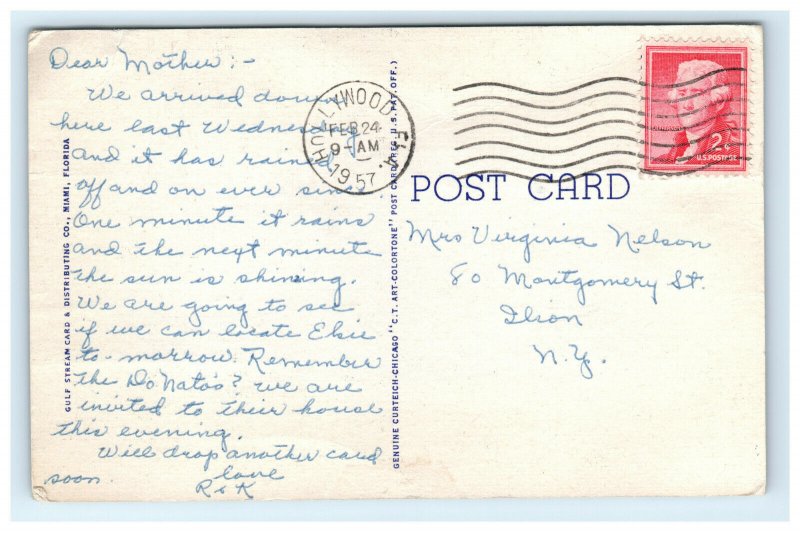 Dear Mother:-
We arrived down
here last Wednesday
and it has rained
off and on ever since.
One minute it rains
and the next minute
the sun is shining.
We are going to see
if we can locate Elsie
to-morrow. Remember
the Do Nato's? We are
invited to their house
this evening.
Will drop another card
soon. love
R & K
GULF STREAM CARD & DISTRIBUTING CO., MIAMI, FLORIDA
GENUINE CURTEICH-CHICAGO "C.T. ART-COLORTONE" POST CARD (REG. U.S. PAT. OFF.)
HOLLYWOOD FLA.
FEB 24
9-AM
1957
2¢
U.S. POSTAGE
POST CARD
Mrs Virginia Nelson
80 Montgomery St.
Ilion
N.Y.